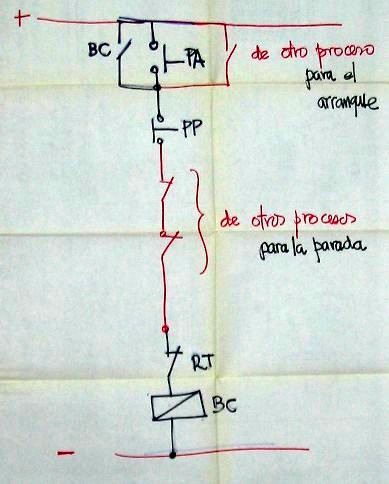 +
BC
PA
de otro proceso
para el
arranque
PP
de otros procesos
para la parada
RT
BC
-